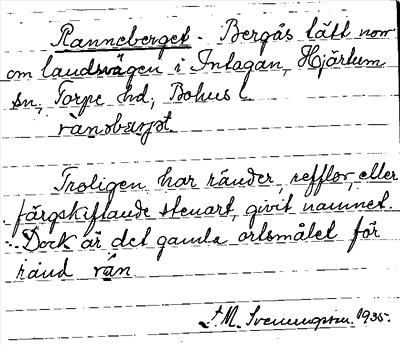 Ranneberget - Bergås lätt norr
om landsvägen i Intagan, Hjärtum
sn, Torpe hd, Bohus l.
ránsbærjet
Troligen har ränder, refflor, eller
färgskiftande stenart, givit namnet.
Dock är det gamla ortsmålet för
rand rän
M. Svenungsson 1935.